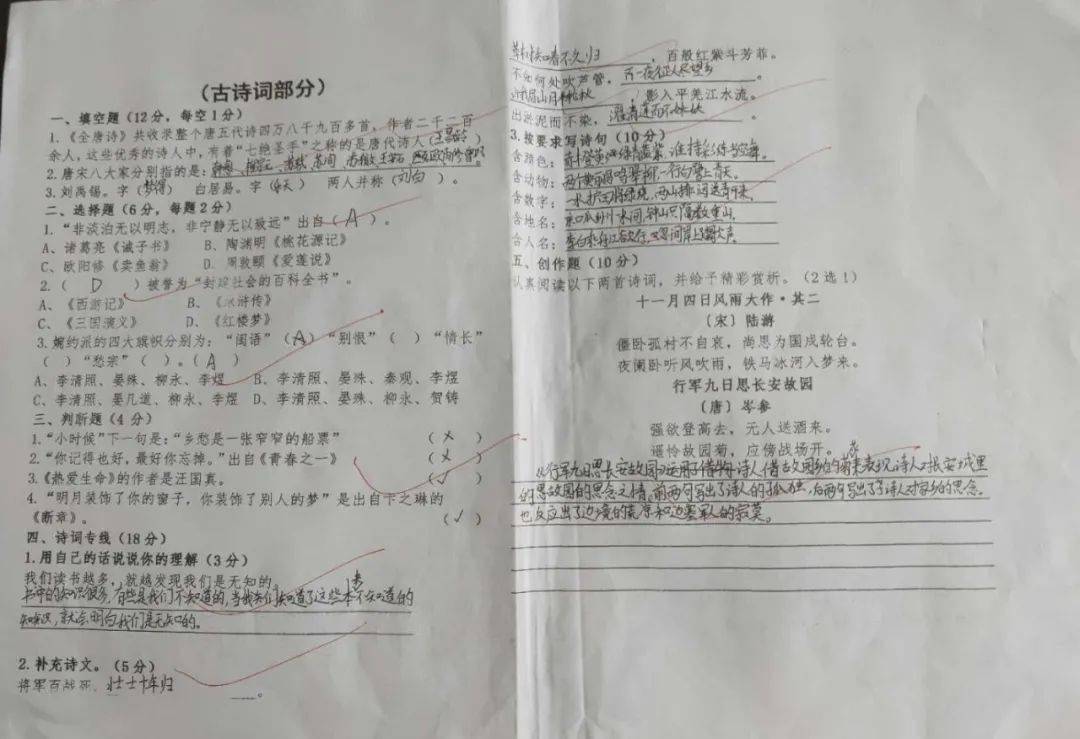 （古诗词部分）
一、填空题（12分，每空1分）
1.《全唐诗》共收录整个唐五代诗四万八千九百多首，作者二千二百
余人，这些优秀的诗人中，有着“七绝圣手”之称的是唐代诗人（王昌龄）
2. 唐宋八大家分别指的是：韩愈、柳宗元、苏轼、苏洵、苏辙、王安石、欧阳修、曾巩
3. 刘禹锡。字（梦得） 白居易。字（乐天） 两人并称（刘白）。
二、选择题（6分，每题2分）
1. “非淡泊无以明志，非宁静无以致远”出自（A）。
A、诸葛亮《诫子书》 B、陶渊明《桃花源记》
C、欧阳修《卖鱼翁》 D、周敦颐《爱莲说》
2.（ D ）被誉为“封建社会的百科全书”。
A、《西游记》 B、《水浒传》
C、《三国演义》 D、《红楼梦》
3. 婉约派的四大旗帜分别为：“闺语”（A）“别恨”（ ）“情长”
（ ）“愁宗”（ ）。（A）
A、李清照、晏殊、柳永、李煜 B、李清照、晏殊、秦观、李煜
C、李清照、晏几道、柳永、李煜 D、李清照、晏殊、柳永、贺铸
三、判断题（4分）
1.“小时候”下一句是：“乡愁是一张窄窄的船票” （×）
2.“你记得也好，最好你忘掉。”出自《青春之一》 （×）
3.《热爱生命》的作者是汪国真。 （√）
4. “明月装饰了你的窗子，你装饰了别人的梦”是出自卞之琳的
《断章》。 （√）
四、诗词专线（18分）
1. 用自己的话说说你的理解（3分）
我们读书越多，就越发现我们是无知的
书中的知识很多，有些是我们不知道的，当我们知道了这些本不知道的
知识，就会明白我们是无知的。
2. 补充诗文。（5分）
将军百战死，壮士十年归。
草树知春不久归，百般红紫斗芳菲。
不知何处吹芦管，一夜征人尽望乡。
峨眉山月半轮秋，影入平羌江水流。
出淤泥而不染，濯清涟而不妖。
3. 按要求写诗句（10分）
含颜色：赤橙黄绿青蓝紫，谁持彩练当空舞。
含动物：两个黄鹂鸣翠柳，一行白鹭上青天。
含数字：一水护田将绿绕，两山排闼送青来。
含地名：京口瓜洲一水间，钟山只隔数重山。
含人名：李白乘舟将欲行，忽闻岸上踏歌声。
五、创作题（10分）
认真阅读以下两首诗词，并给予精彩赏析。（2选1）
十一月四日风雨大作·其二
〔宋〕陆游
僵卧孤村不自哀，尚思为国戍轮台。
夜阑卧听风吹雨，铁马冰河入梦来。
行军九日思长安故园
〔唐〕岑参
强欲登高去，无人送酒来。
遥怜故园菊，应傍战场开。
《行军九日思长安故园》运用了借物 诗人借故园 的菊花来表现诗人对长安城里
的思故园的思念之情。前两句写出了诗人的孤独，后两句写出了诗人对家乡的思念。
也反应出了边境的荒凉和边塞军人的寂寞。